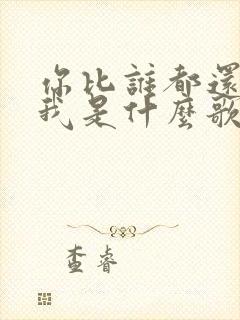 你比誰都還
我是什麼歌
查睿